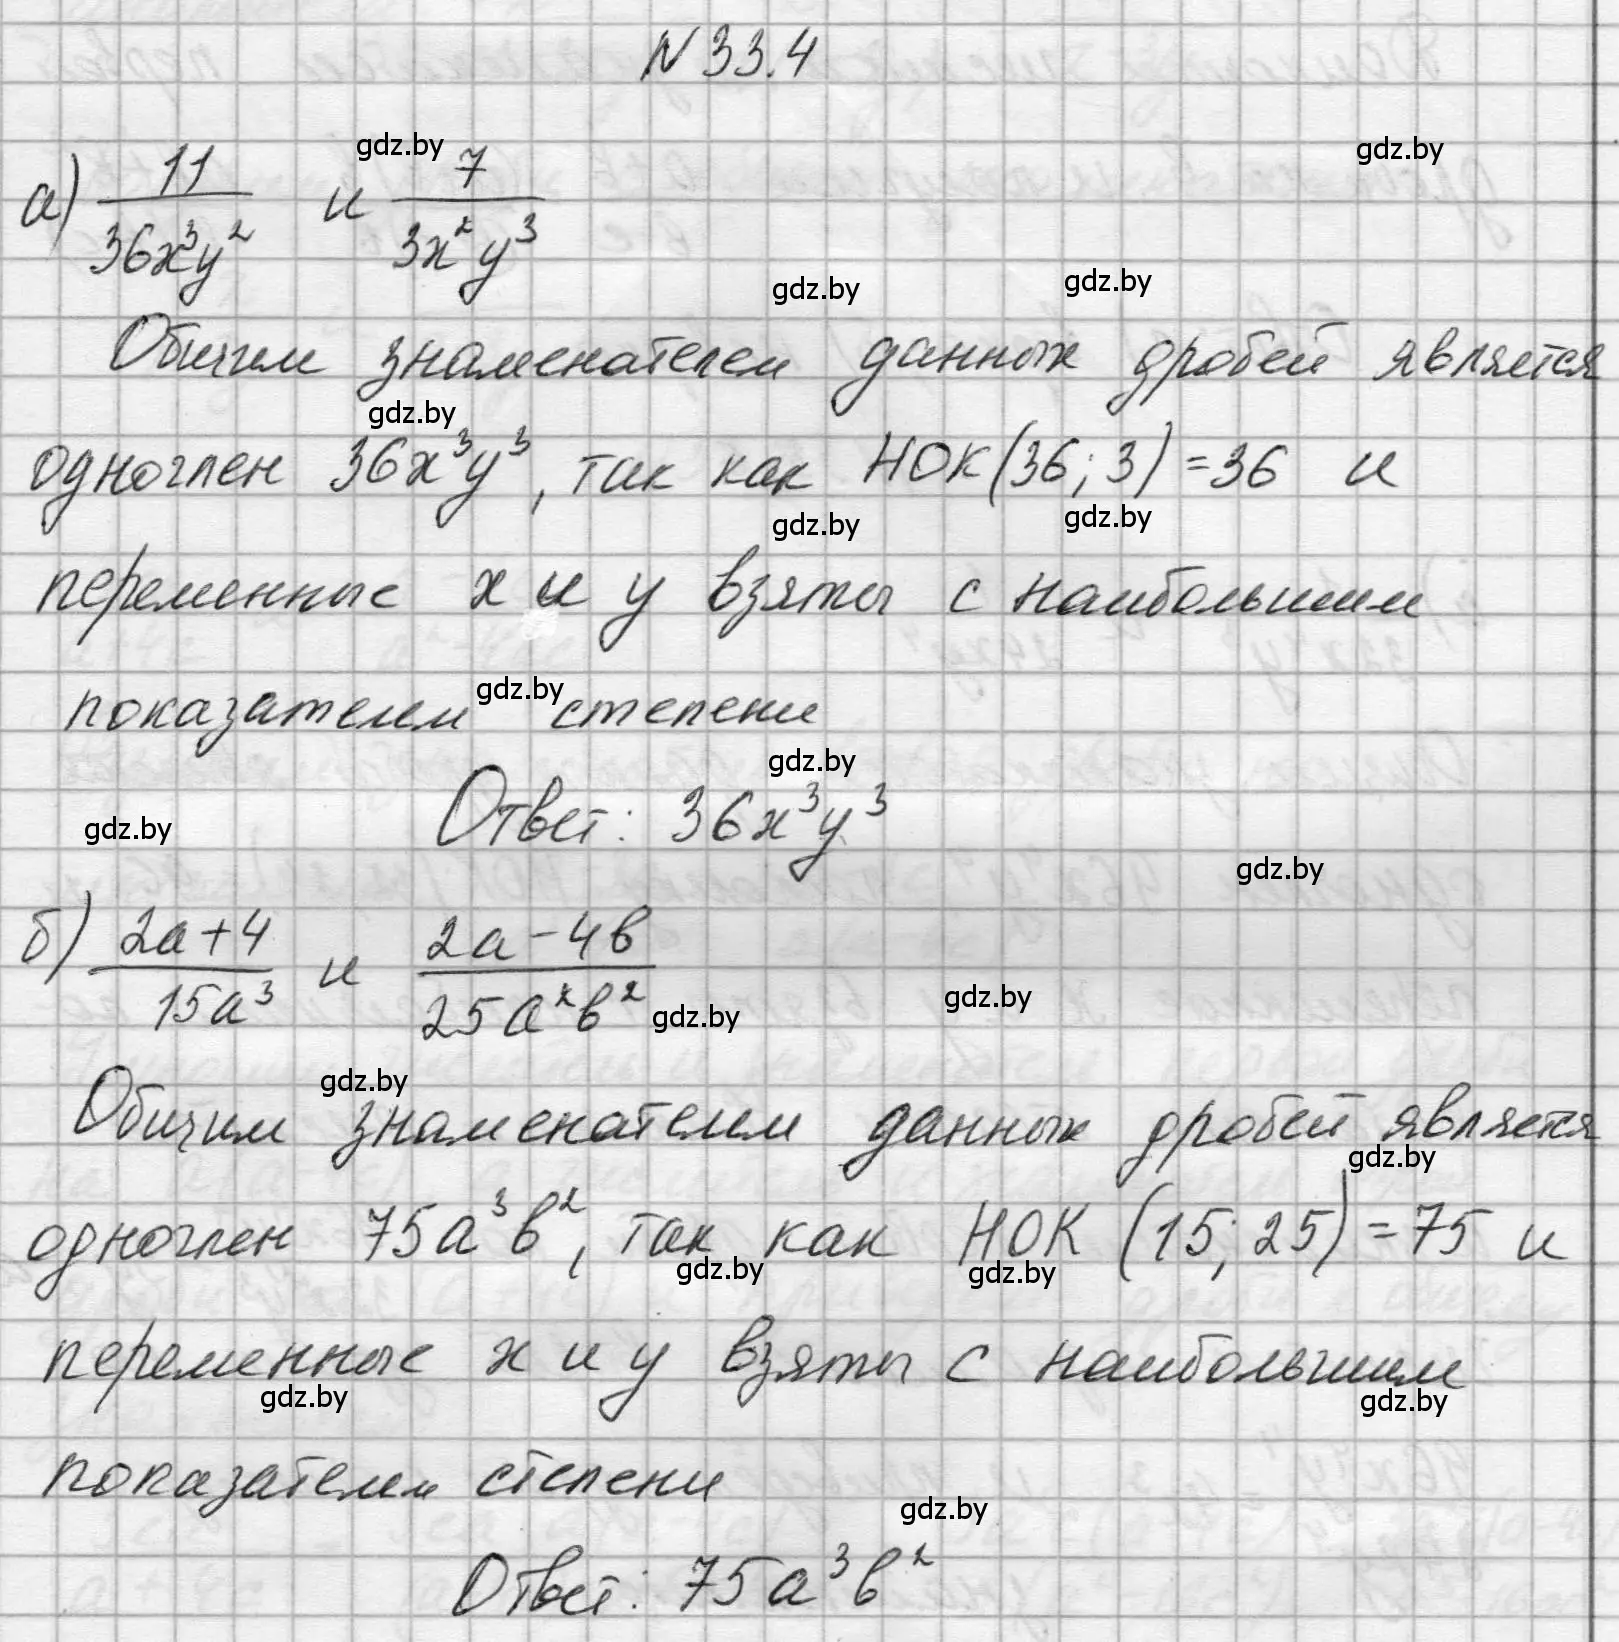 N 33.4
gdz.by gdz.by
а) 11/(36x³y²) и 7/(3x²y³)
gdz.by gdz.by
Общим знаменателем данных дробей является
gdz.by
одночлен 36x³y³, так как НОК(36; 3) = 36 и
gdz.by gdz.by
переменные x и y взяты с наибольшим
показателем gdz.by степени
gdz.by
gdz.by Ответ: 36x³y³
gdz.by
б) (2a+4)/(15a³) и (2a-4b)/(25a²b²)
gdz.by gdz.by
gdz.by
Общим знаменателем данных дробей является
gdz.by
одночлен 75a³b², так как НОК (15; 25) = 75 и
gdz.by gdz.by
переменные x и y взяты с наибольшим
gdz.by gdz.by
показателем степени
gdz.by
Ответ: 75a³b²